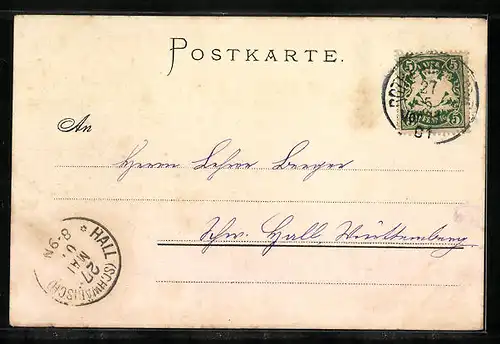 POSTKARTE.
5 5
27
5
5 5
01
An
Herrn Lehrer Berger
Schw. Hall Württemberg
* HALL (SCHWÄBISCH)
27.
MAI
8-9N